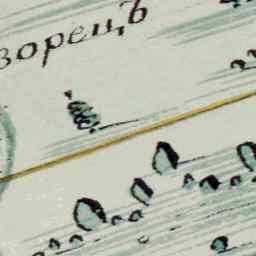 ворецъ